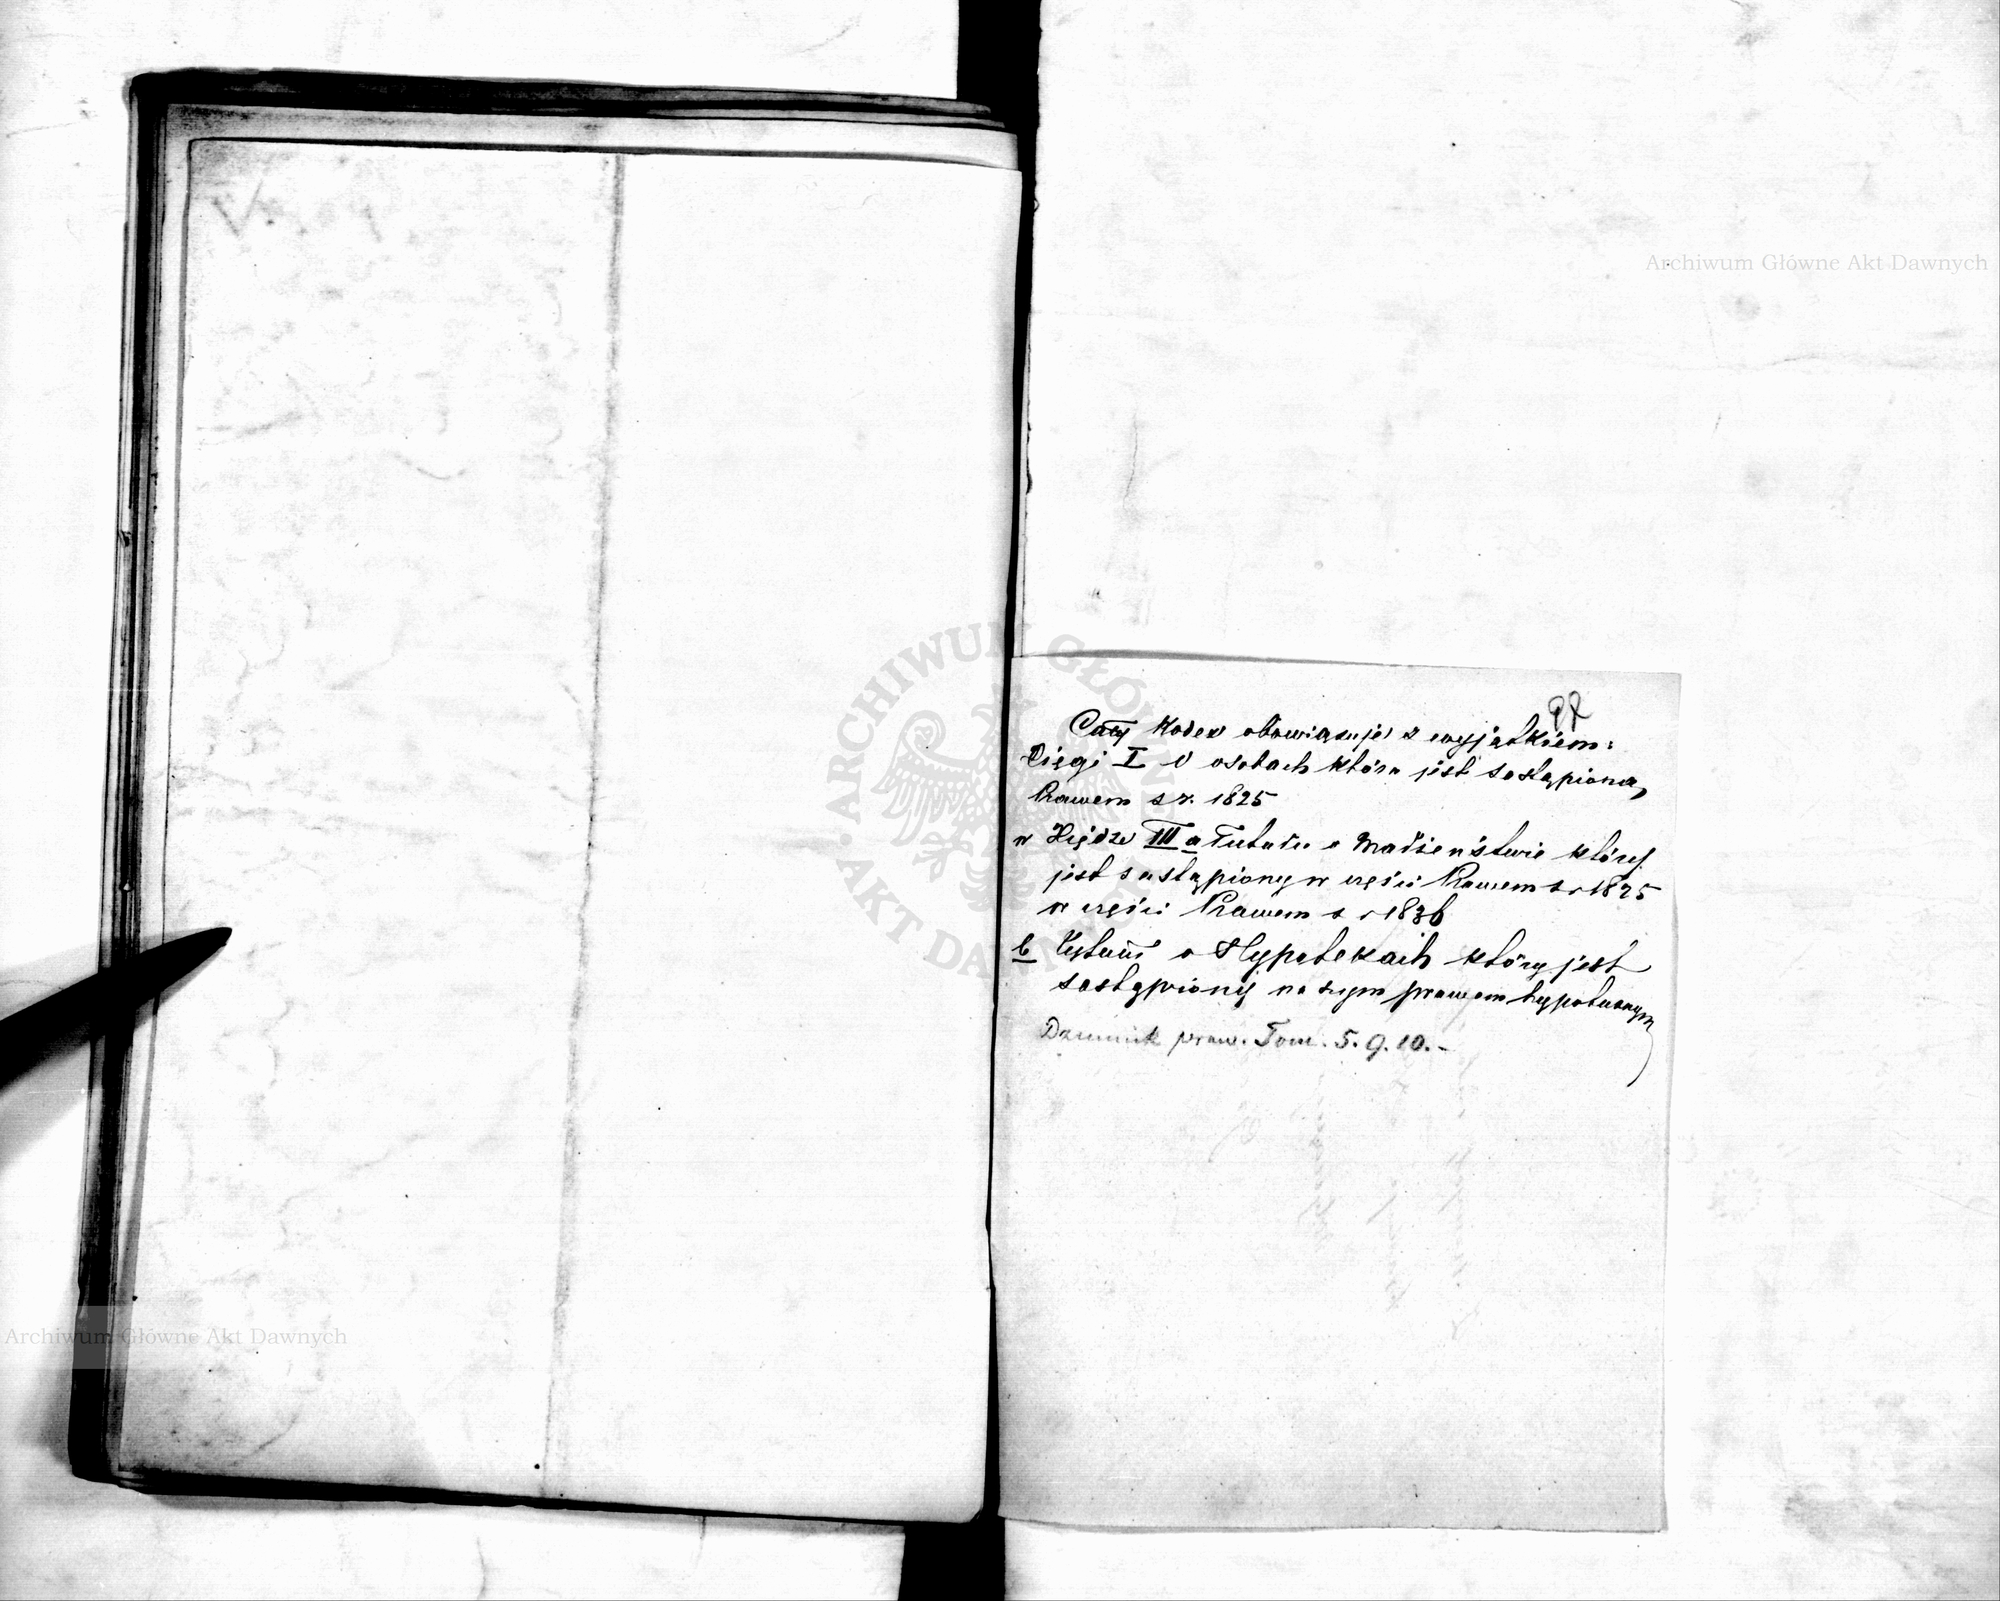 97
Cały Kodex obowiązuje z wyjątkiem:
Xięgi I O osobach która jest zastąpiona,
Prawem z r. 1825
w Xiędze III a Tutułu o Małżeństwie który
jest zastąpiony w części Prawem z r 1825
w części Prawem z r 1836
b Tytułu o Hypotekach który jest
zastąpiony naszym prawem hypotecznym
Dziennik praw. Tom. 5. 9. 10. –
Archiwum Główne Akt Dawnych
Archiwum Główne Akt Dawnych
ARCHIWUM GŁÓWNE AKT DAWNYCH